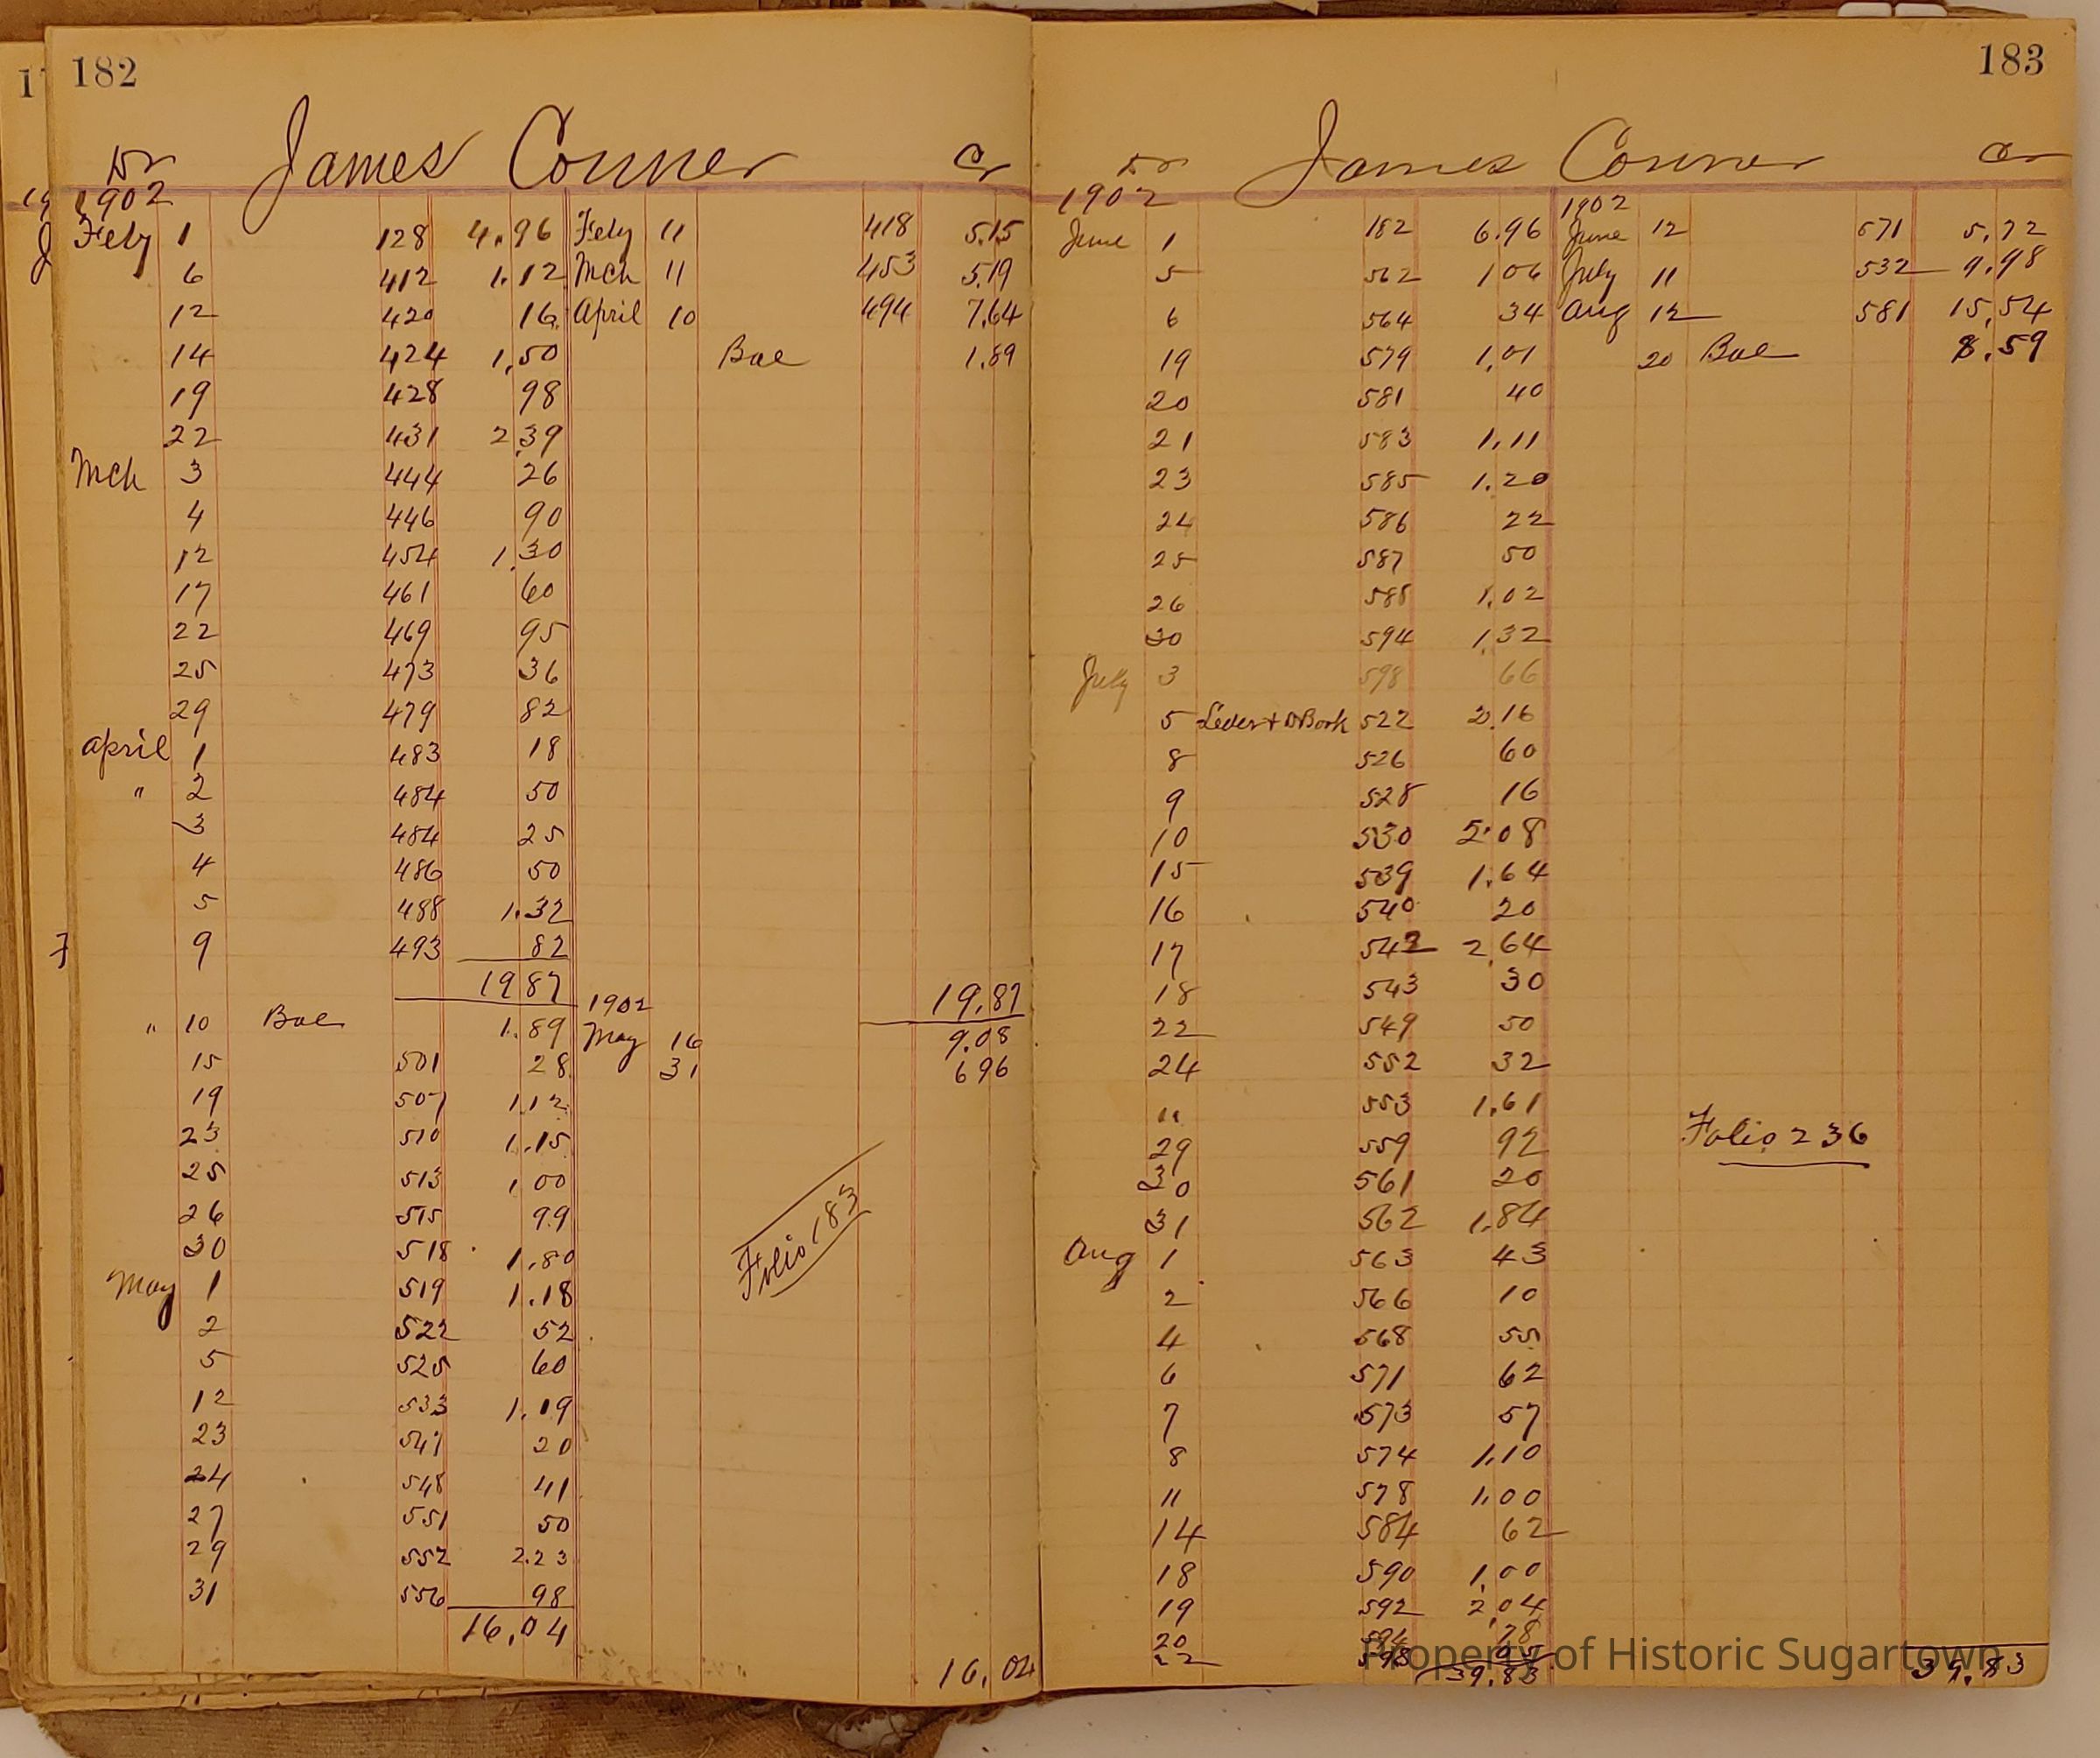 182
James Conner
Dr Cr
1902
Feby 1 128 4.96 Feby 11 418 5.15
6 412 1.12 Mch 11 453 5.19
12 420 16 April 10 494 7.64
14 424 1.50 Bal 1.89
19 428 98
22 431 2.39
Mch 3 444 26
4 446 90
12 454 1.30
17 461 60
22 469 95
25 473 36
29 479 82
April 1 483 18
" 2 484 50
3 484 25
4 486 50
5 488 1.32
9 493 82
19 87 19.87
" 10 Bal 1.89 1902 May 16 9.08
15 501 28 31 6 96
19 507 1.12
23 510 1.15
25 513 1 00
26 515 99
30 518 1.80
May 1 519 1.18
2 522 52
5 525 60
12 533 1.19
23 547 20
24 548 41
27 551 50
29 552 2.23
31 556 98
16.04
16.04
Folio 183
183
James Conner
Dr Cr
1902 1902
June 1 182 6.96 June 12 571 5.72
5 562 1 06 July 11 532 9.98
6 564 34 Aug 12 581 15.54
19 579 1.01 20 Bal 8.59
20 581 40
21 583 1.11
23 585 1.20
24 586 22
25 587 50
26 588 1.02
30 594 1.32
July 3 598 66
5 522 2.16
8 526 60
9 528 16
10 530 5.08
15 539 1.64
16 540 20
17 542 2.64
18 543 30
22 549 50
24 552 32
" 553 1.61
29 559 92
30 561 20
31 562 1.84
Aug 1 563 43
2 566 10
4 568 55
6 571 62
7 573 57
8 574 1.10
11 578 1.00
14 584 62
18 590 1.00
19 592 2.04
20 78
22 598
39.83 39.83
Folio 236
Property of Historic Sugartown